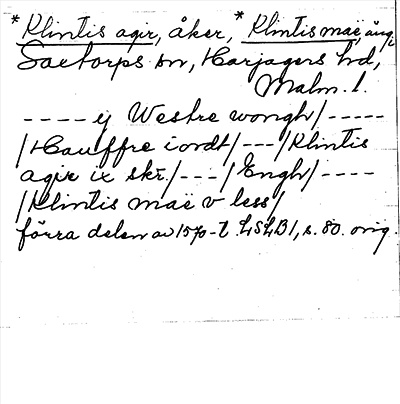 *Klintis agir, åker, *Klintis maë, äng,
Saetorps sn, Harjagers hd,
Malm. l.
---- ij Westre wongh/-----
/Hauffre iordt/---/Klintis
agir ix skr./---/Engh/----
/Klintis maë v less/
förra delen av 1570-t. LSLB1, s. 80. orig.